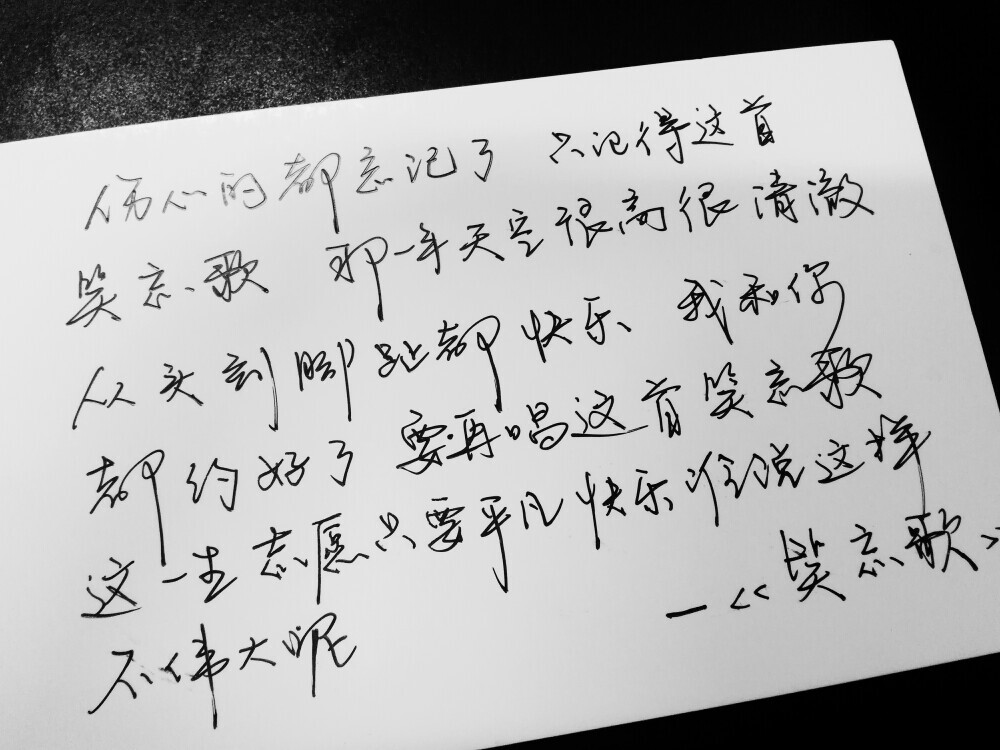 伤心的都忘记了 只记得这首
笑忘歌 那一年天空很高很清澈
从头到脚趾都快乐 我和你
都约好了 要再唱这首笑忘歌
这一生志愿只要平凡快乐 谁说这样
不伟大呢
—《笑忘歌》